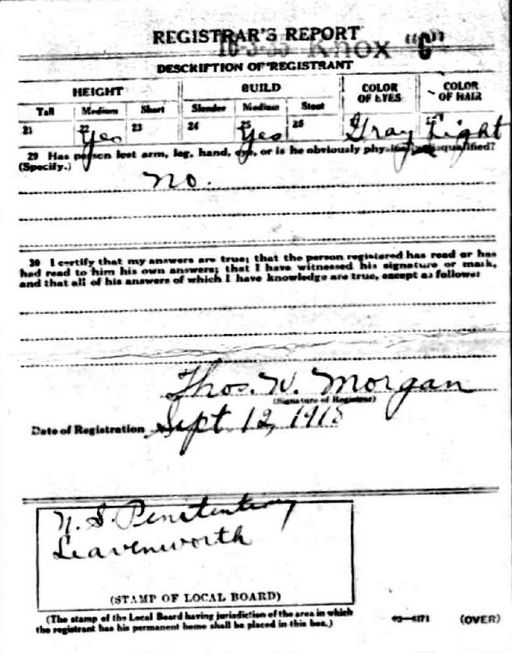 REGISTRAR'S REPORT
16-3-35 Knox "C"
DESCRIPTION OF REGISTRANT
HEIGHT BUILD COLOR OF EYES COLOR OF HAIR
Tall Medium Short Slender Medium Stout
21 22 Yes 23 24 25 Yes 26 Gray Light
29 Has person lost arm, leg, hand, eye, or is he obviously physically disqualified?
(Specify.)
No.
30 I certify that my answers are true; that the person registered has read or has
had read to him his own answers; that I have witnessed his signature or mark,
and that all of his answers of which I have knowledge are true, except as follows:
Thos. W. Morgan
(Signature of Registrar)
Date of Registration Sept 12, 1918
U. S. Penitentiary
Leavenworth
(STAMP OF LOCAL BOARD)
(The stamp of the Local Board having jurisdiction of the area in which
the registrant has his permanent home shall be placed in this box.)
03-6171 (OVER)